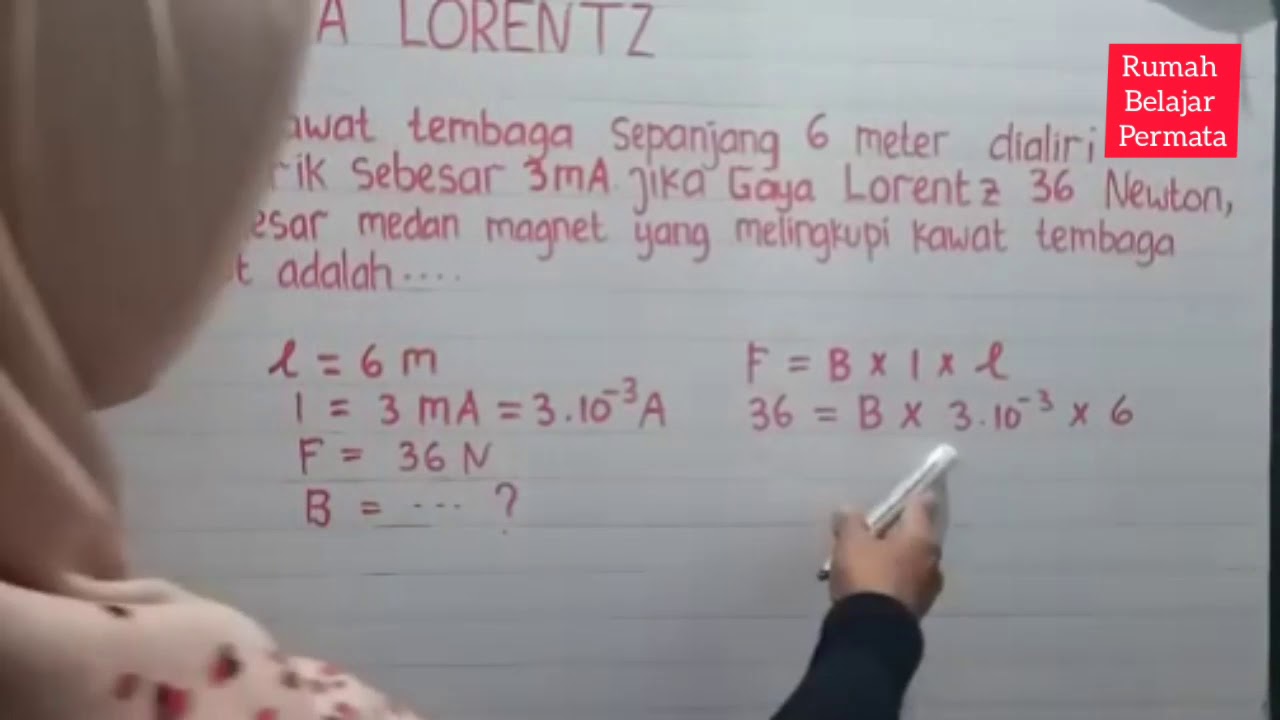 A LORENTZ
Rumah
Belajar
Permata
awat tembaga sepanjang 6 meter dialiri
rik sebesar 3 mA. jika Gaya Lorentz 36 Newton,
esar medan magnet yang melingkupi kawat tembaga
t adalah ....
l = 6 m
I = 3 mA = 3.10⁻³ A
F = 36 N
B = ... ?
F = B x I x l
36 = B x 3.10⁻³ x 6